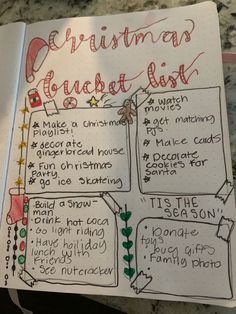 Christmas
bucket list
Make a Christmas
playlist!
decorate
gingerbread house
Fun christmas
Party
go ice skateing
watch
movies
get matching
PJs
Make Cads
Decorate
Cookies for
Santa
Build a Snow-
man
Drink hot coca
Go light riding
Have holiday
lunch with
friends
See nutcracker
"TIS THE
SEASON"
Donate
toys
buy gifts
Family photo